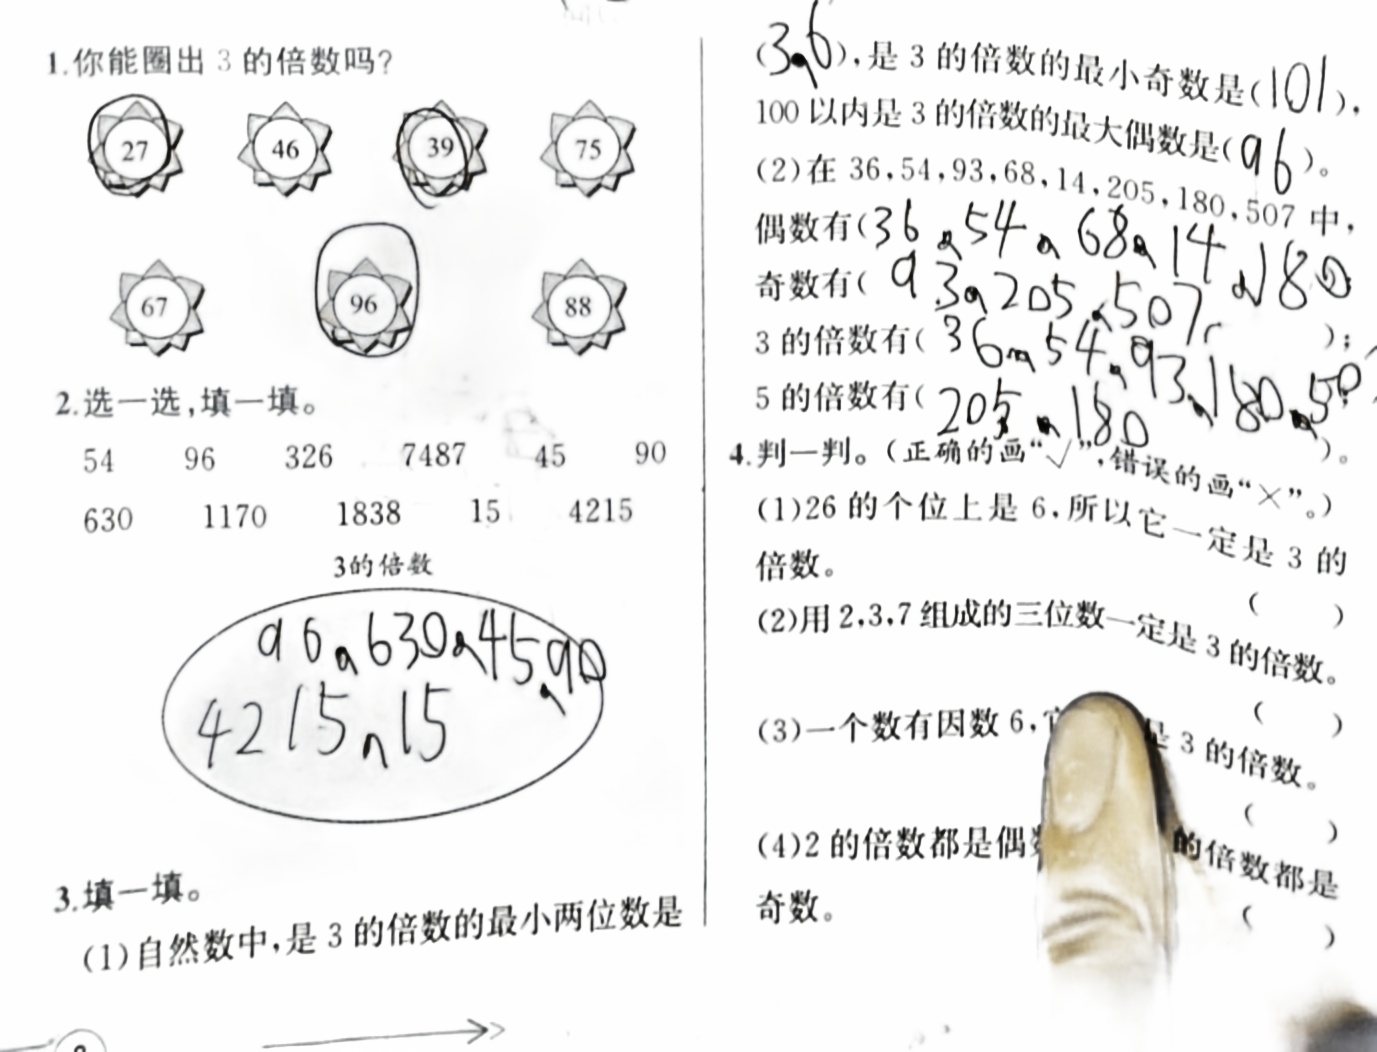 1.你能圈出 3 的倍数吗?
27 46 39 75
67 96 88
2.选一选,填一填。
54 96 326 7487 45 90
630 1170 1838 15 4215
3的倍数
96、630、45、90
4215、15
3.填一填。
(1)自然数中,是 3 的倍数的最小两位数是
(3、6),是 3 的倍数的最小奇数是(101),
100 以内是 3 的倍数的最大偶数是(96)。
(2)在 36,54,93,68,14,205,180,507 中,
偶数有(36、54、68、14、180
奇数有(93、205、507 );
3 的倍数有(36、54、93、180、50 );
5 的倍数有(205、180 )。
4.判一判。(正确的画“√”,错误的画“×”。)
(1)26 的个位上是 6,所以它一定是 3 的
倍数。
( )
(2)用 2,3,7 组成的三位数一定是 3 的倍数。
( )
(3)一个数有因数 6, 是 3 的倍数。
( )
(4)2 的倍数都是偶 的倍数都是
奇数。
( )